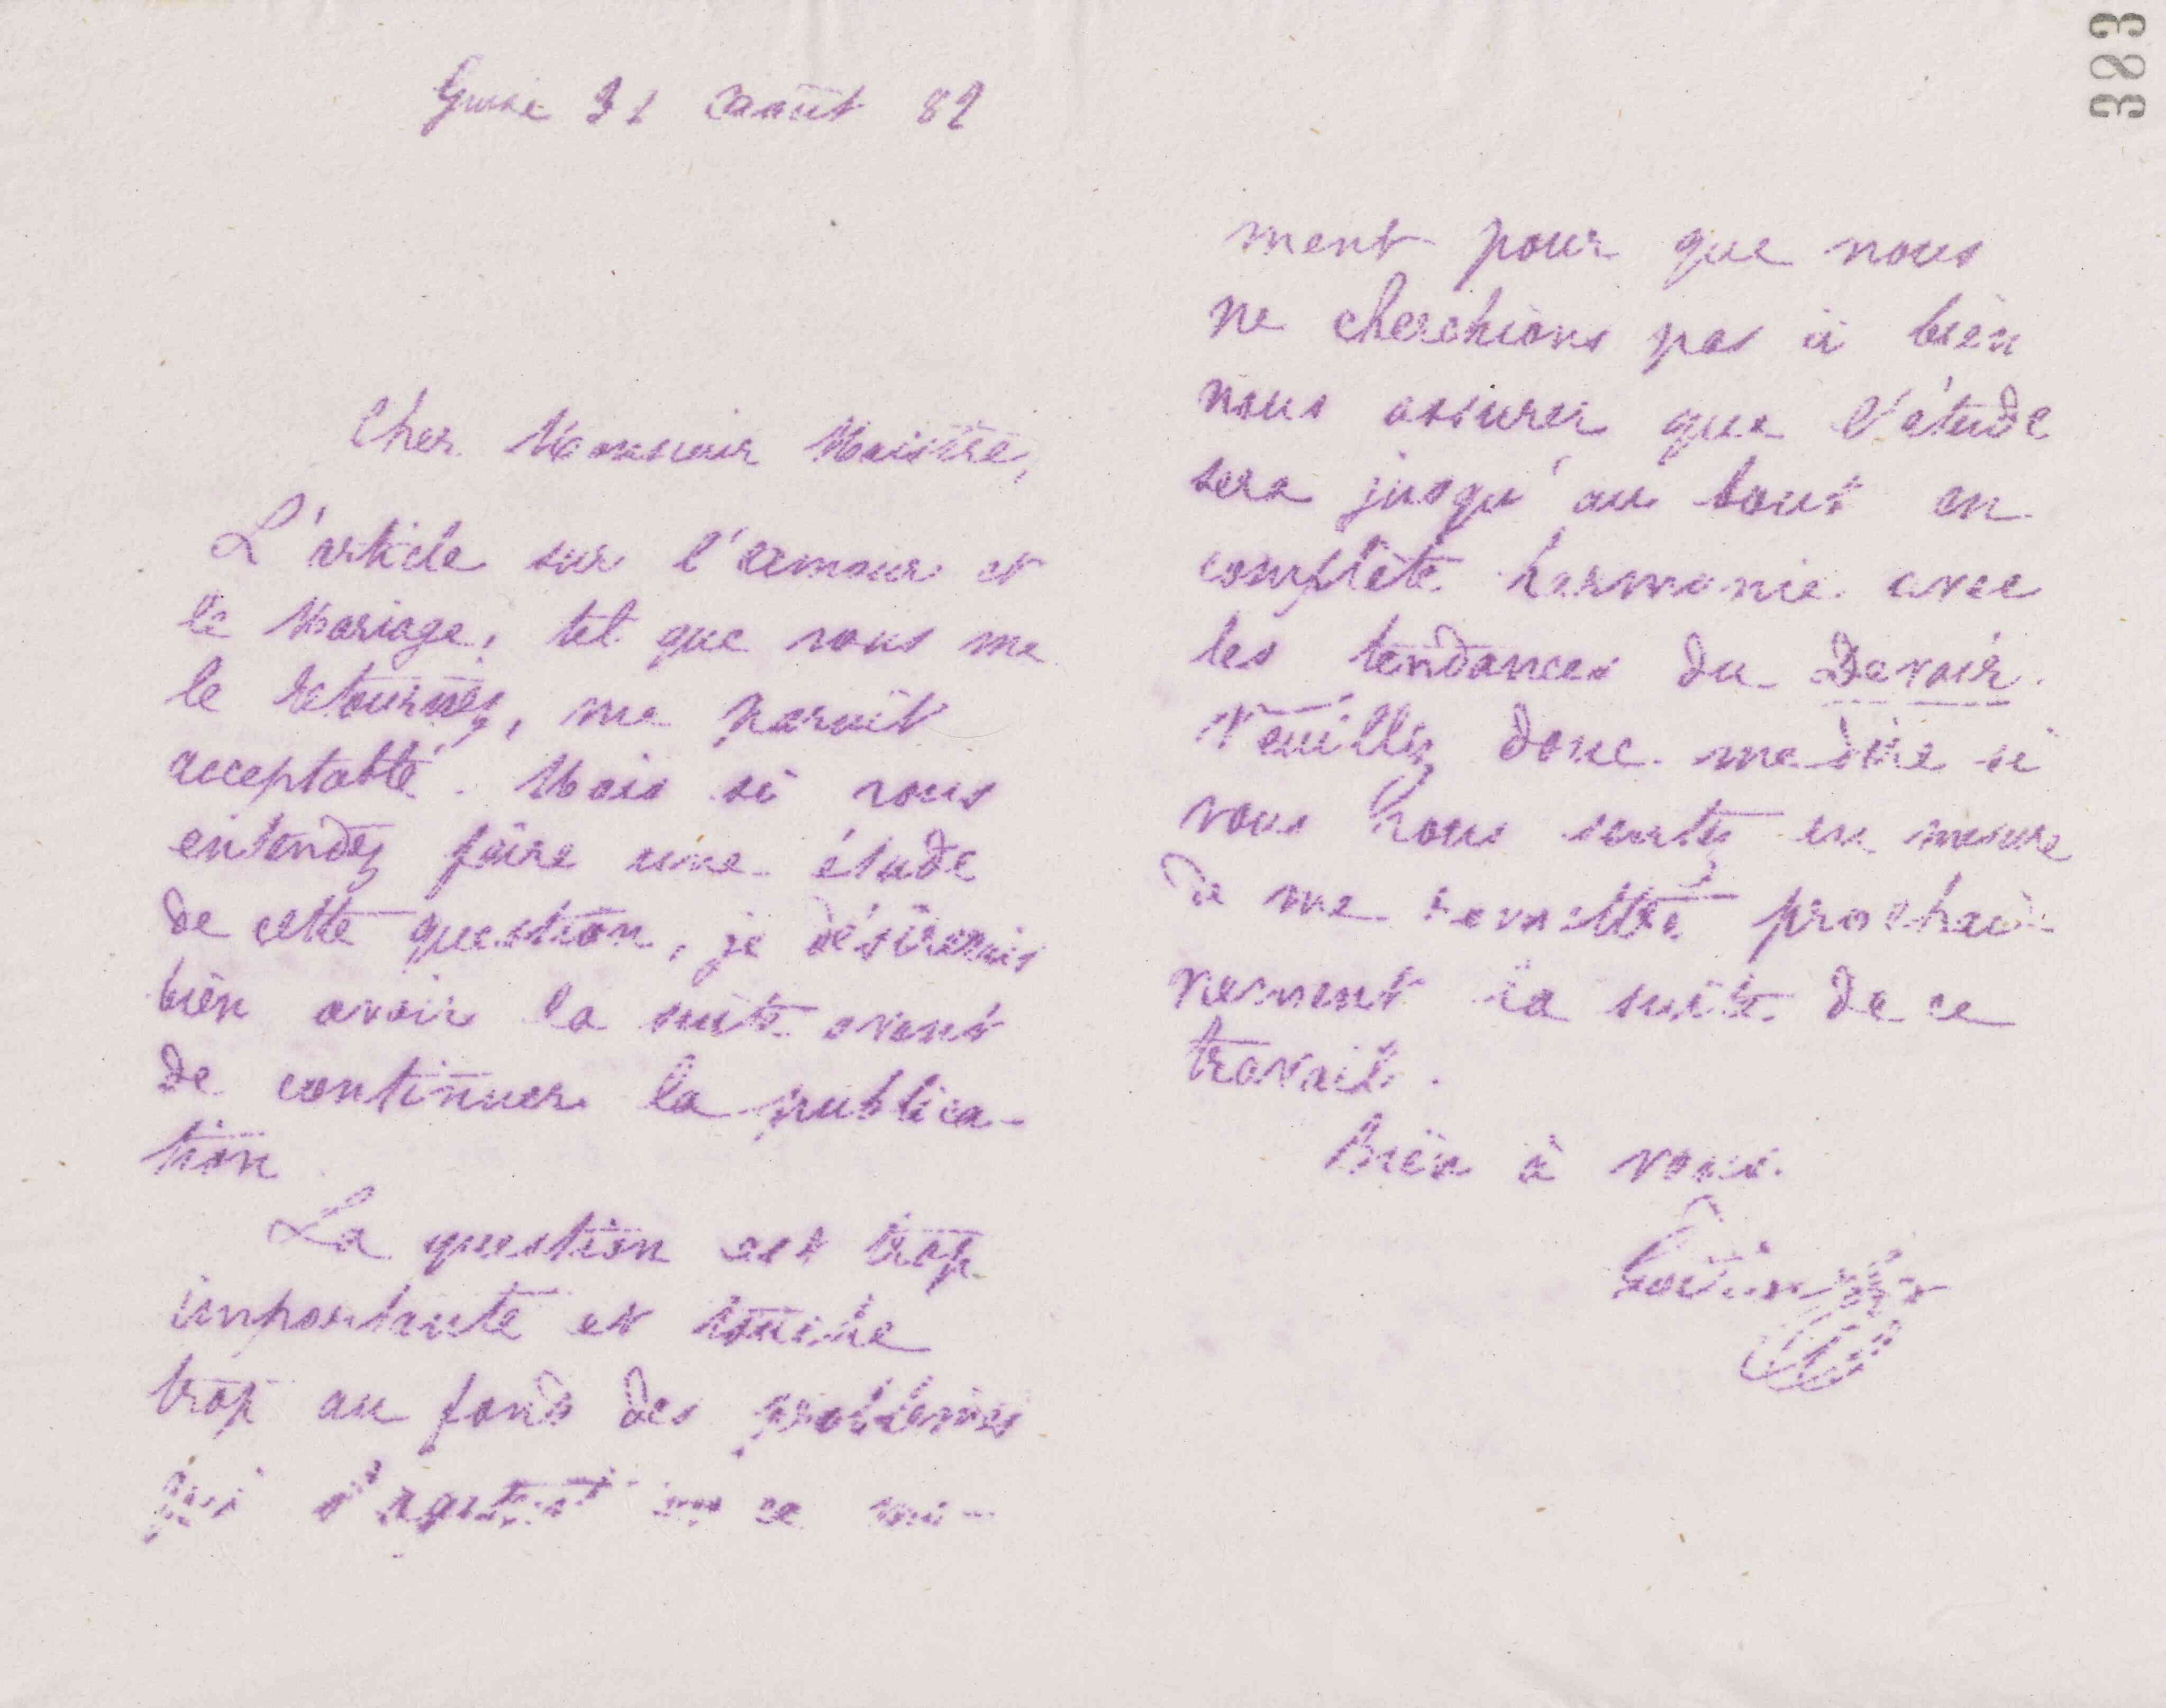 383
Guise 31 Août 82
Cher Monsieur Maistre,
L'article sur l'amour et
le Mariage, tel que vous me
le retournez, me paraît
acceptable. Mais si vous
entendez faire une étude
de cette question, je désirerais
bien avoir la suite avant
de continuer la publica-
tion
La question est trop
importante et touche
trop au fond des problèmes
qui s'agitent en ce mo-
ment pour que nous
ne cherchions pas à bien
nous assurer que l'étude
sera jusqu'au bout en
complète harmonie avec
les tendances du Devoir.
Veuillez donc me dire si
vous vous sentez en mesure
de me remettre prochai-
nement la suite de ce
travail.
Bien à vous.
Godin